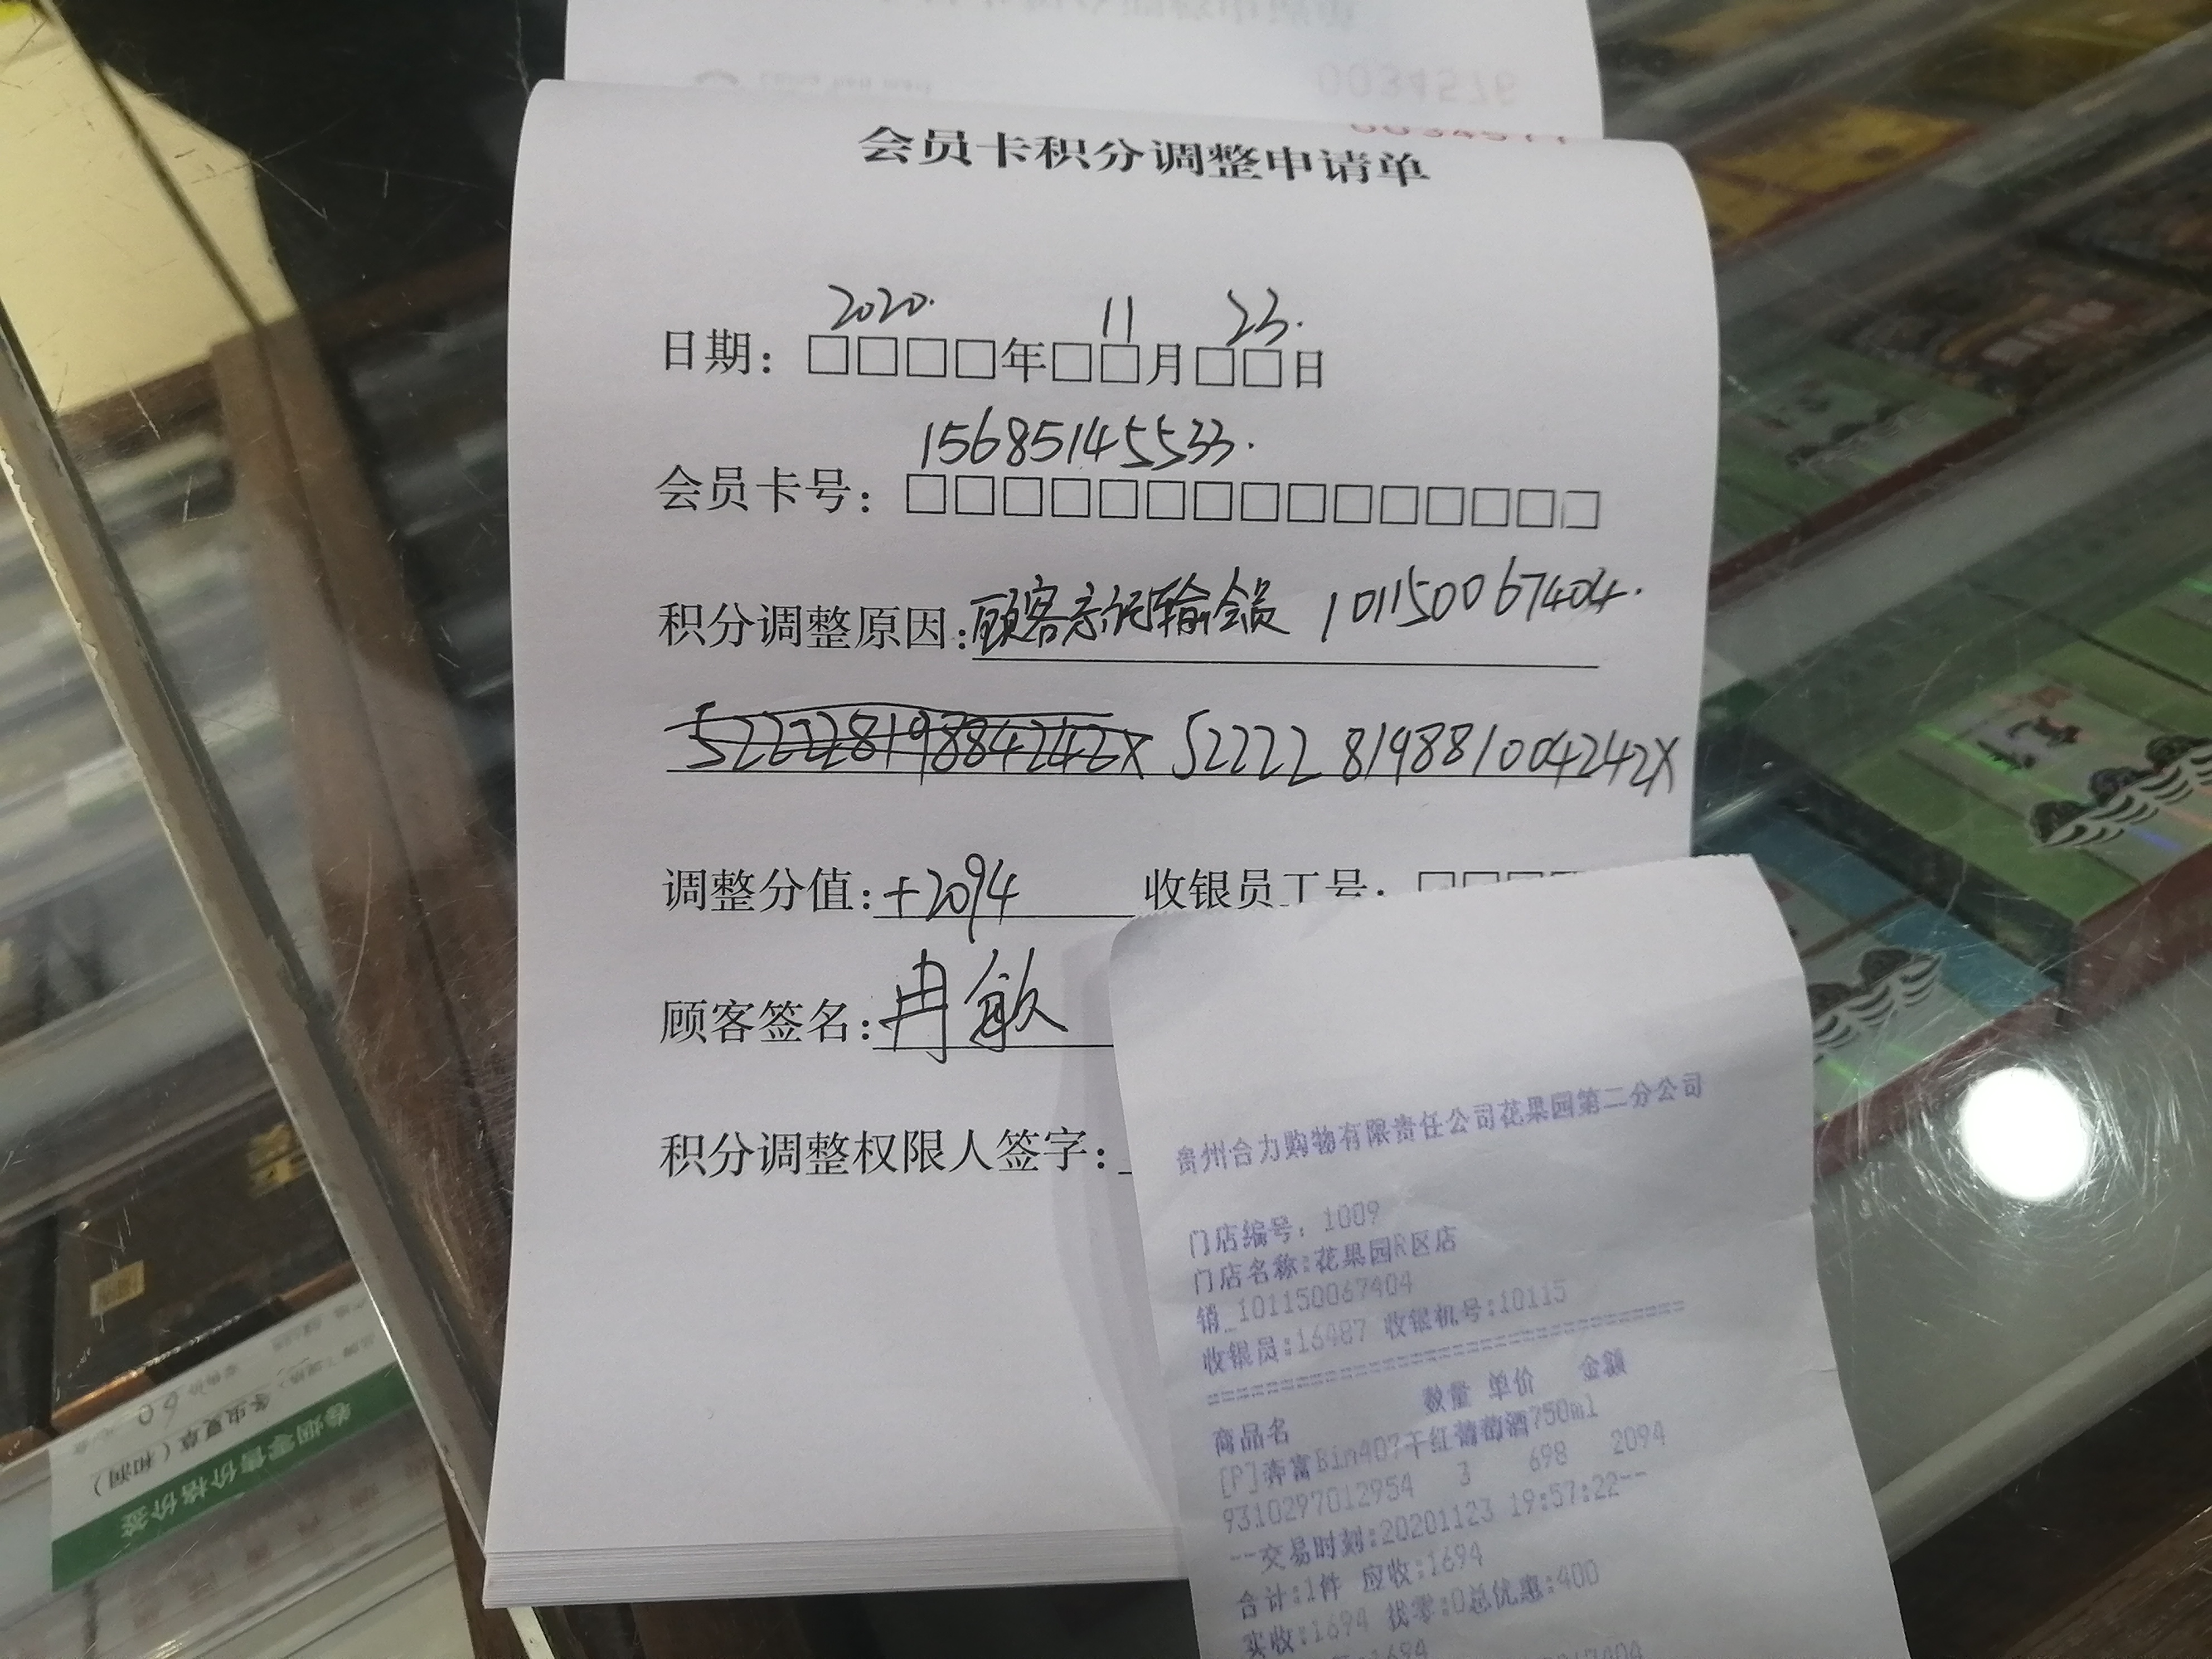 0034576
会员卡积分调整申请单
2020. 11 23.
日期：□□□□年□□月□□日
15685145533.
会员卡号：□□□□□□□□□□□□□□□
积分调整原因：顾客忘记输会员 101150067404.
52222819884242X 52222819881004242X
调整分值：+2094 收银员工号：□□□
顾客签名：冉敏
积分调整权限人签字：
贵州合力购物有限责任公司花果园第二分公司
门店编号：1009
门店名称：花果园R区店
销_101150067404
收银员：16487 收银机号：10115
商品名 数量 单价 金额
[P]奔富Bin407干红葡萄酒750ml
9310297012954 3 698 2094
--交易时刻:20201123 19:57:22--
合计:1件 应收:1694
实收:1694 找零:0总优惠:400
卷烟零售价格价签
冬虫夏草（和润）
60